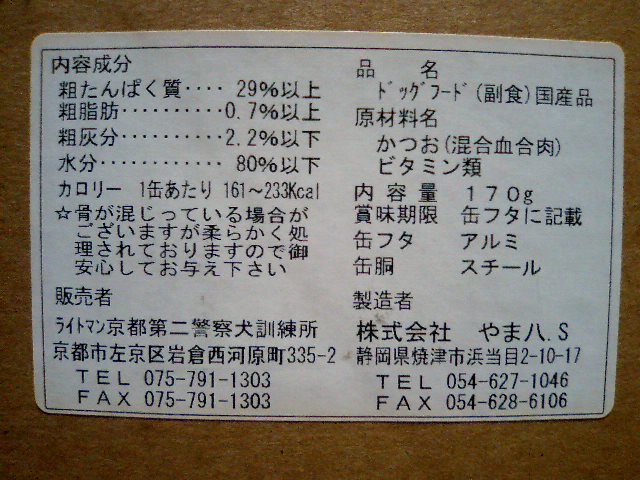 内容成分
粗たんぱく質‥‥ 29%以上
粗脂肪‥‥‥‥‥ 0.7%以上
粗灰分‥‥‥‥‥ 2.2%以下
水分‥‥‥‥‥‥ 80%以下
カロリー 1缶あたり 161～233Kcal
☆骨が混じっている場合が
ございますが柔らかく処
理されておりますので御
安心してお与え下さい
販売者
ﾗｲﾄﾏﾝ京都第二警察犬訓練所
京都市左京区岩倉西河原町335-2
TEL 075-791-1303
FAX 075-791-1303
品 名
ﾄﾞｯｸﾞﾌｰﾄﾞ(副食)国産品
原材料名
かつお(混合血合肉)
ビタミン類
内容量 170g
賞味期限 缶フタに記載
缶フタ アルミ
缶胴 スチール
製造者
株式会社 やま八.S
静岡県焼津市浜当目2-10-17
TEL 054-627-1046
FAX 054-628-6106